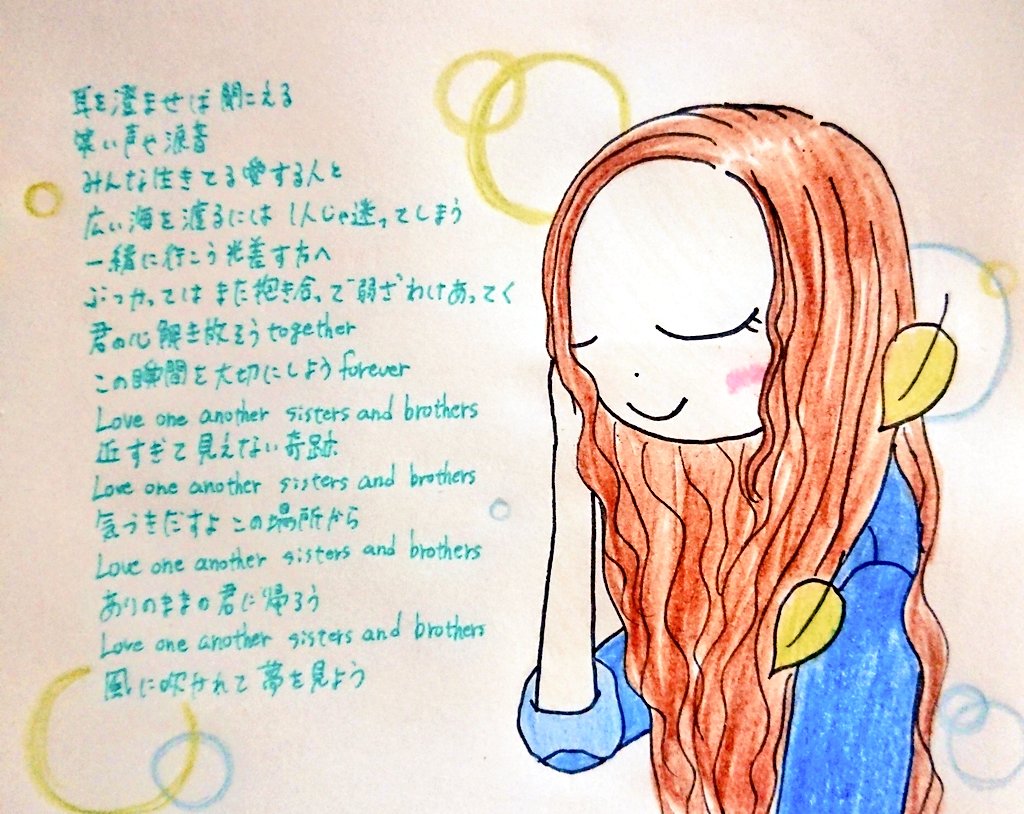 耳を澄ませば聞こえる
笑い声や波音
みんな生きてる愛する人と
広い海を渡るには 1人じゃ迷ってしまう
一緒に行こう光差す方へ
ぶつかっては また抱き合って 弱さわけあってく
君の心解き放そう together
この瞬間を大切にしよう forever
Love one another sisters and brothers
近すぎて見えない奇跡
Love one another sisters and brothers
気づきだすよ この場所から
Love one another sisters and brothers
ありのままの君に帰ろう
Love one another sisters and brothers
風に吹かれて夢を見よう